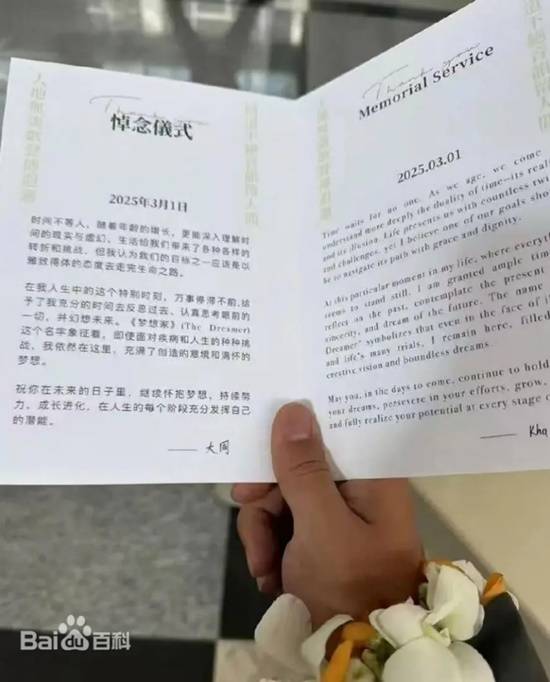 Thank you
悼念儀式
2025年3月1日
时间不等人，随着年龄的增长，更能深入理解时
间的现实与虚幻，生活给我们带来了各种各样的
转折和挑战，但我认为我们的目标之一应该是以
雅致得体的态度去走完生命之路。
在我人生中的这个特别时刻，万事停滞不前，给
予了我充分的时间去反思过去、认真思考眼前的
一切，并幻想未来。《梦想家》(The Dreamer)
这个名字象征着，即使面对疾病和人生的种种挑
战，我依然在这里，充满了创造的意境和满怀的
梦想。
祝你在未来的日子里，继续怀抱梦想，持续努
力、成长进化，在人生的每个阶段充分发挥自己
的潜能。
Thank you
Memorial Service
2025.03.01
Time waits for no one. As we age, we come
understand more deeply the duality of time—its reali
and its illusion. Life presents us with countless twi
and challenges, yet I believe one of our goals shou
be to navigate its path with grace and dignity.
At this particular moment in my life, where everyth
seems to stand still, I am granted ample time
reflect on the past, contemplate the present
sincerity, and dream of the future. The name
Dreamer" symbolizes that even in the face of i
and life's many trials, I remain here, filled
creative vision and boundless dreams.
May you, in the days to come, continue to hold
your dreams, persevere in your efforts, grow,
and fully realize your potential at every stage o
Kha
Baidu百科